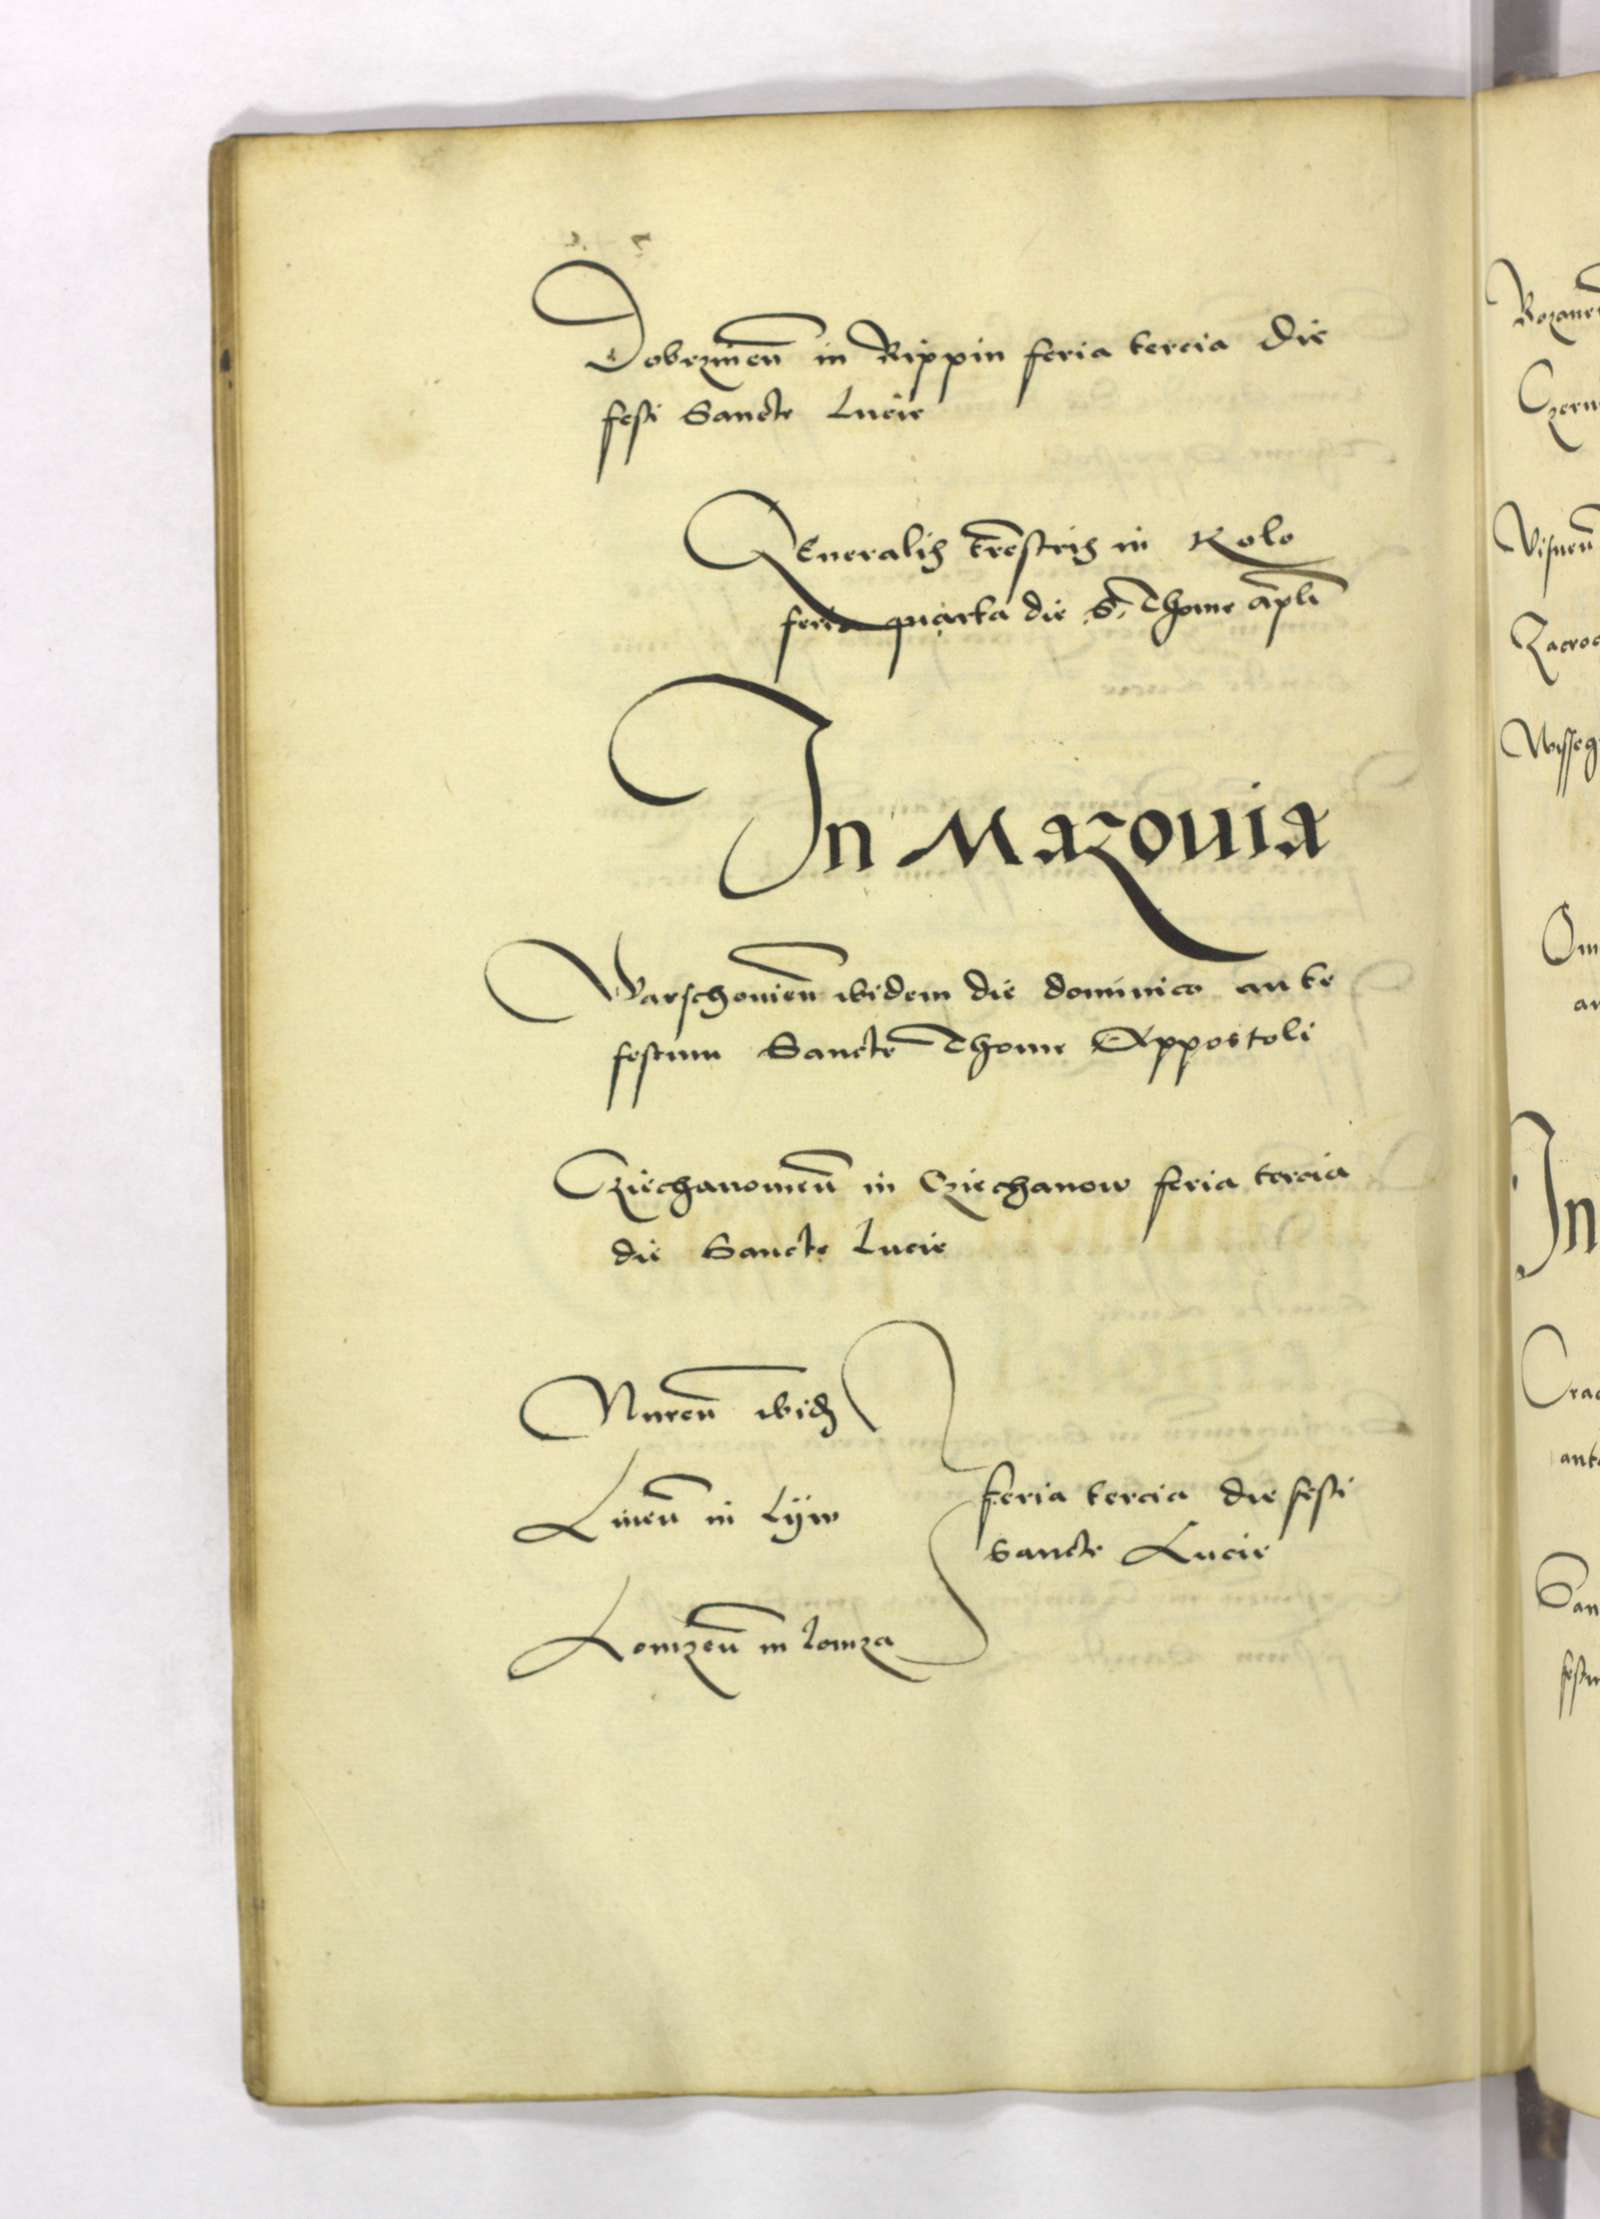 Dobrzineñ in Rippin feria tercia die
festi Sancte Lucie
Generalis tr̃estris in Kolo
feria quarta die S. Thome apl̃i
In Mazouia
Warschouieñ ibidem die dominico ante
festum Sancte Thome Appostoli
Cziechanouieñ in Cziechanow feria tercia
die Sancte Lucie
Nureñ ibid
Liueñ in Lÿw
feria tercia die festi
Sancte Lucie
Lomzeñ in lomza
Rozane
Czern
Visneñ
Zacroc
Wisseg
Om
an
In
Crac
ante
San
festu